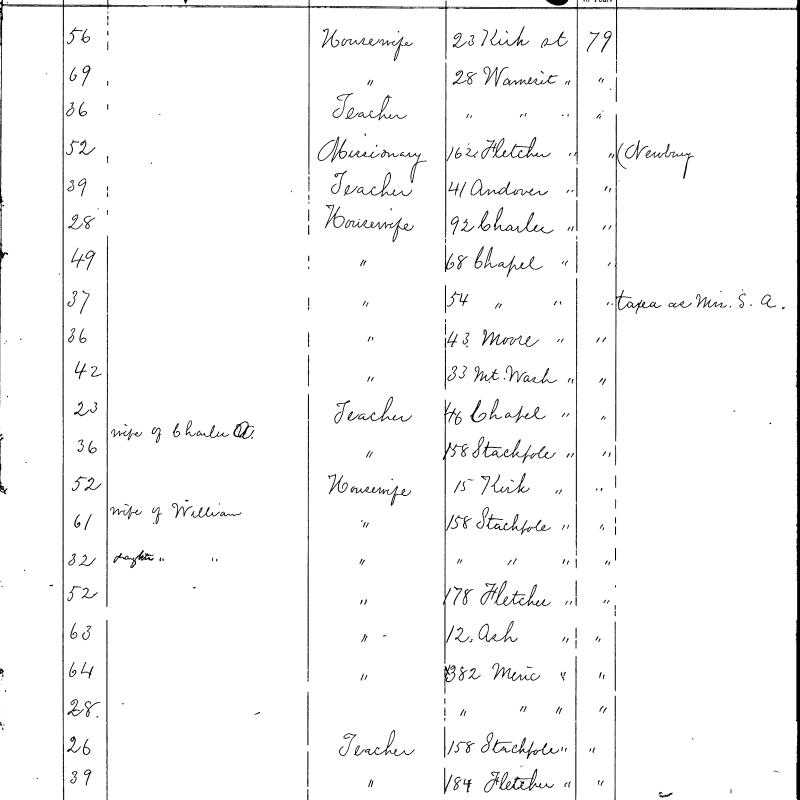 56 Housewife 23 Kirk st 79
69 " 28 Wamesit " "
36 Teacher " " " "
52 Missionary 162 Fletcher " " (Newbury
39 Teacher 41 Andover " "
28 Housewife 92 Charles " "
49 " 68 Chapel " "
37 " 54 " " " taxed as Mrs. S. A.
36 " 43 Moore " "
42 " 33 Mt. Wash " "
23 Teacher 46 Chapel " "
36 wife of Charles " 158 Stackpole " "
52 Housewife 15 Kirk " "
61 wife of William " 158 Stackpole " "
32 daughter " " " " " " "
52 " 178 Fletcher " "
63 " 12 Ash " "
64 " 382 Meric " "
28. " " " "
26 Teacher 158 Stackpole " "
39 " 184 Fletcher " "